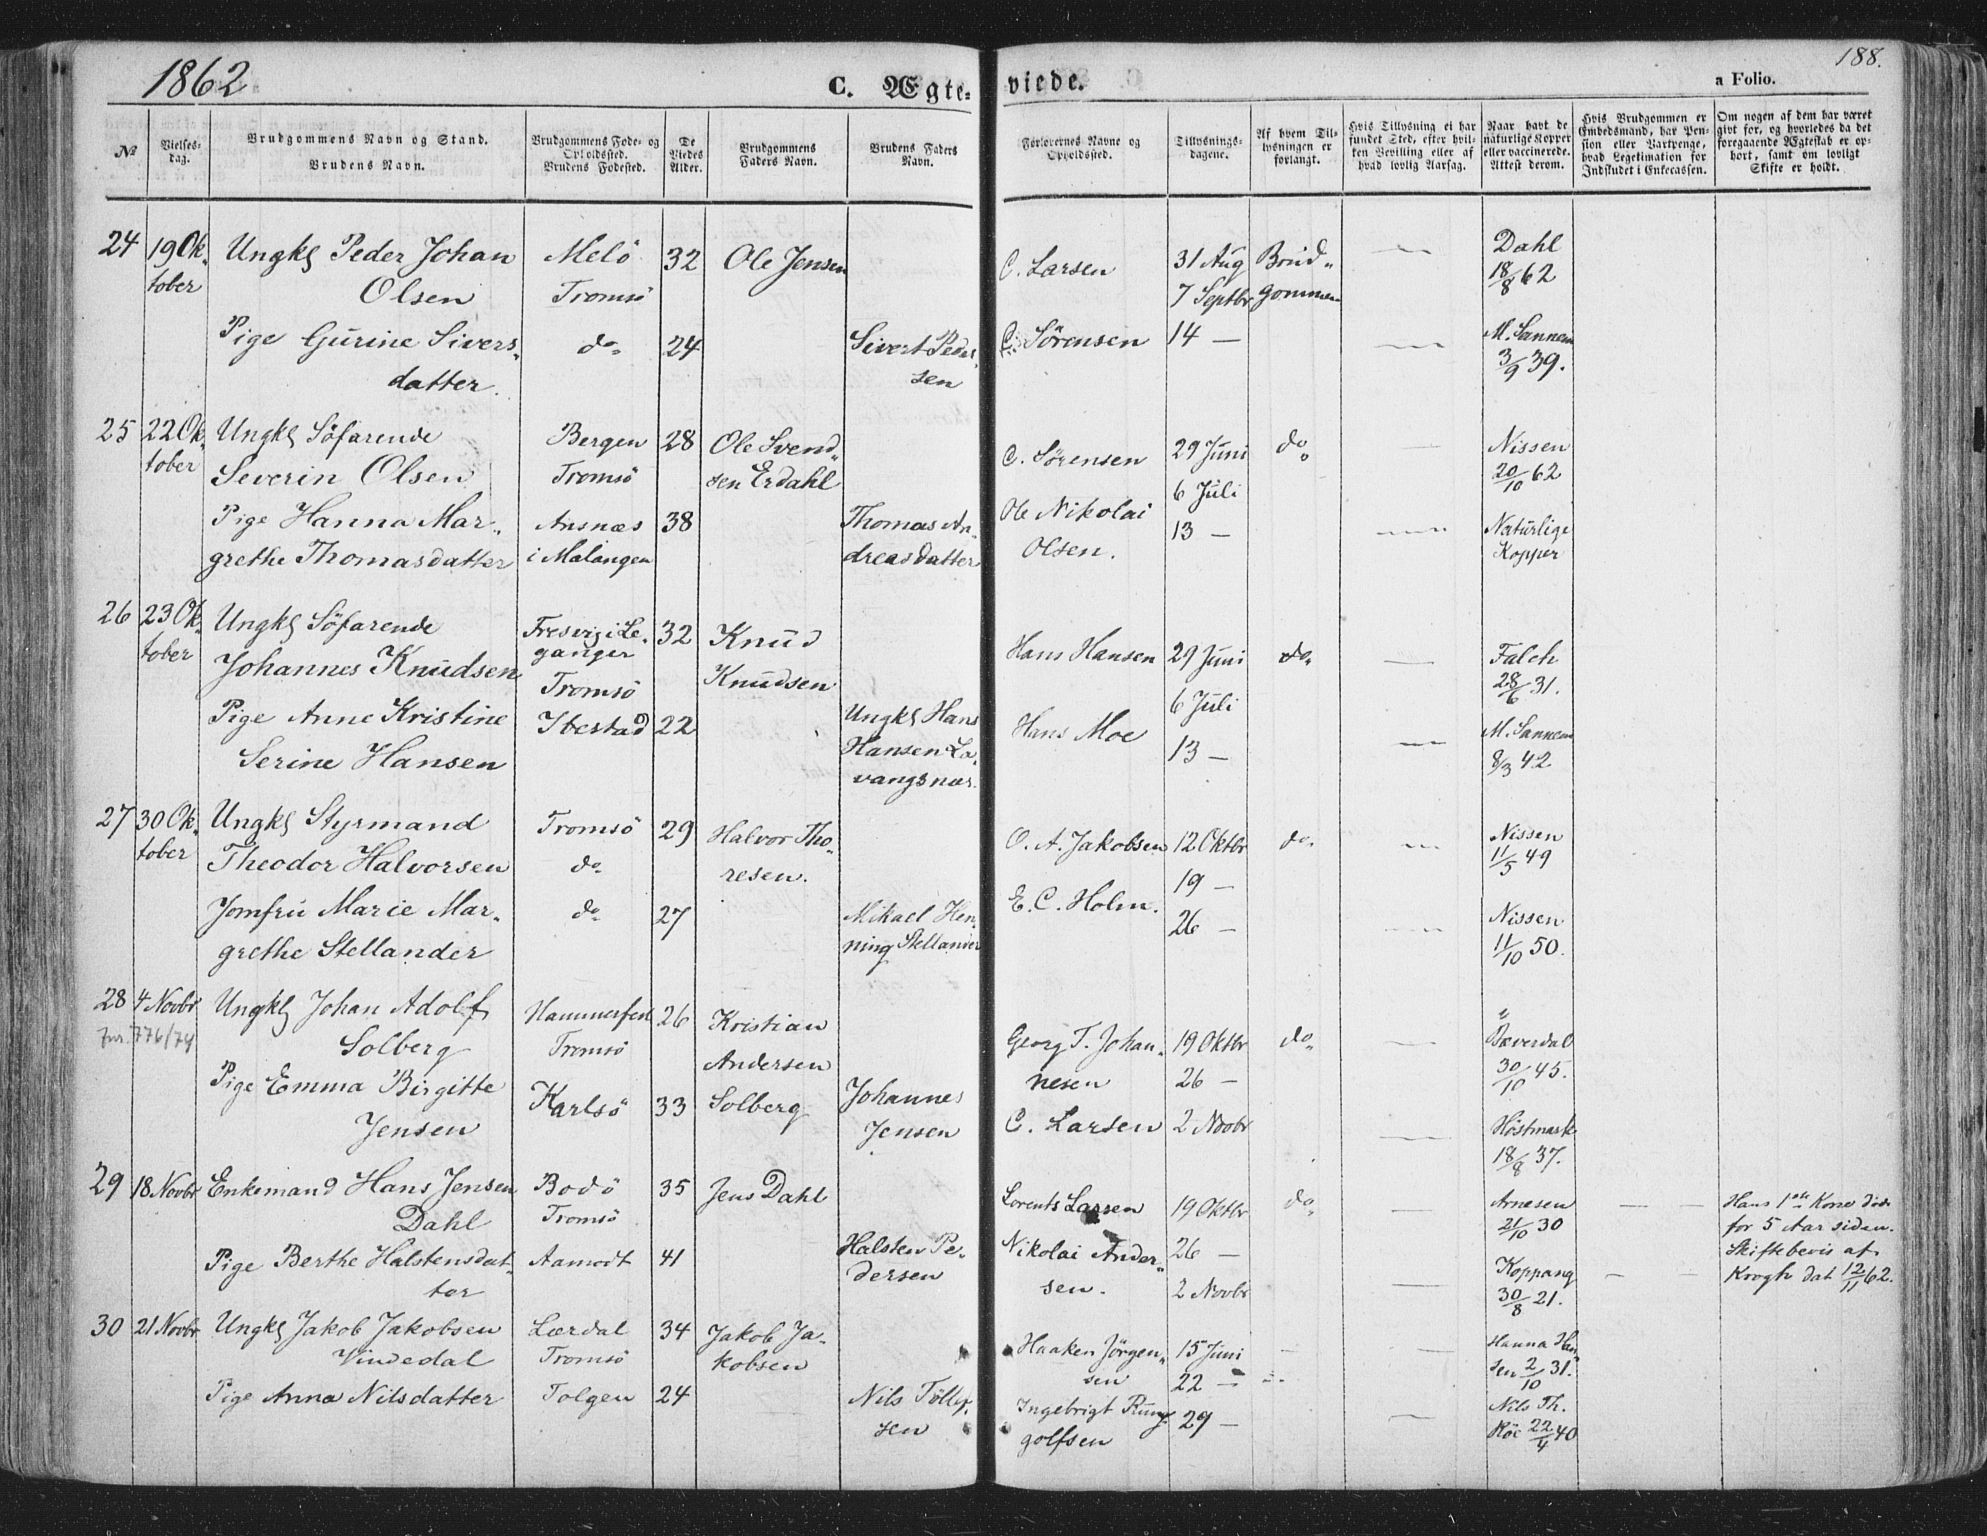 1862
C. Ægte-
viede.
a Folio.
188.
No
Vielses-
dag.
Brudgommens Navn og Stand.
Brudens Navn.
Brudgommens Føde- og
Opholdssted.
Brudens Fødested.
De
Viedes
Alder.
Brudgommens
Faders Navn.
Brudens Faders
Navn.
Forlovernes Navne og
Opholdssted.
Tillysnings-
dagene.
Af hvem Til-
lysningen er
forlangt.
Hvis Tillysning ei har
fundet Sted, efter hvil-
ken Bevilling eller af
hvad lovlig Aarsag.
Naar havt de
naturlige Kopper
eller vaccinerede.
Attest derom.
Hvis Brudgommen er
Embedsmand, har Pen-
sion eller Vartpenge,
hvad Legitimation for
Indskudet i Enkecassen.
Om nogen af dem har været
givt før, og hvorledes da det
foregaaende Ægteskab er op-
hørt, samt om lovligt
Skifte er holdt.
24
19 Ok-
tober
Ungkl Peder Johan
Olsen
Pige Gurine Sivers-
datter.
Melö
Tromsö
do
32
24
Ole Jensen
Sivert Peder-
sen
C. Larsen
C. Sörensen
31 Aug
7 Septbr
14 —
Brud-
gommen
Dahl
18/8 62
M. Sannem
3/9 39.
25
22 Ok-
tober
Ungkl Söfarende
Severin Olsen
Pige Hanna Mar-
grethe Thomasdatter
Bergen
Tromsö
Ansnæs
i Malangen
28
38
Ole Svend-
sen Erdahl
Thomas An-
dreasdatter
C. Sörensen
Ole Nikolai
Olsen.
29 Juni
6 Juli
13 —
do
Nissen
20/10 62
Naturlige
Kopper
26
23 Ok-
tober
Ungkl Söfarende
Johannes Knudsen
Pige Anne Kristine
Serine Hansen
Fresvig i Le-
ganger
Tromsö
Ibestad
32
22
Knud
Knudsen
Ungkl Hans
Hansen La-
vangsnæs.
Hans Hansen
Hans Moe
29 Juni
6 Juli
13 —
do
Falch
28/6 31.
M. Sannem
8/3 42
27
30 Ok-
tober
Ungkl Styrmand
Theodor Halvorsen
Jomfru Marie Mar-
grethe Stellander
Tromsö
do
do
29
27
Halvor Tho-
resen.
Mikael Hen-
ning Stellander
O. A. Jakobsen
E. C. Holm.
12 Oktbr
19 —
26 —
do
Nissen
11/5 49
Nissen
11/10 50.
28
4 Novbr
776/74
Ungkl Johan Adolf
Solberg
Pige Emma Birgitte
Jensen
Hammerfest
Tromsö
Karlsö
26
33
Kristian
Andersen
Solberg
Johannes
Jensen
Georg T. Johan-
nesen
C. Larsen
19 Oktbr
26 —
2 Novbr
do
Bæverdal
30/10 45.
Höstmark
18/8 37.
29
18 Novbr
Enkemand Hans Jensen
Dahl
Pige Berthe Halstensdat-
ter
Bodö
Tromsö
Aamodt
35
41
Jens Dahl
Halsten Pe-
dersen
Lorents Larsen
Nikolai Ander-
sen.
19 Oktbr
26 —
2 Novbr
do
Arnesen
21/10 30
Koppang
30/8 21.
Hans 1ste Kone död
for 5 Aar siden.
Skiftebevis af
Krogh dat 12/11 62.
30
21 Novbr
Ungkl Jakob Jakobsen
Vindedal
Pige Anna Nilsdatter
Lærdal
Tromsö
Tolgen
34
24
Jakob Ja-
kobsen
Nils Töllef-
sen
Haaken Jörgen-
sen
Ingebrigt Run-
golfsen
15 Juni
22 —
29 —
Hanna Han-
sen 2/10 31.
Nils Th.
Röe 22/4 40